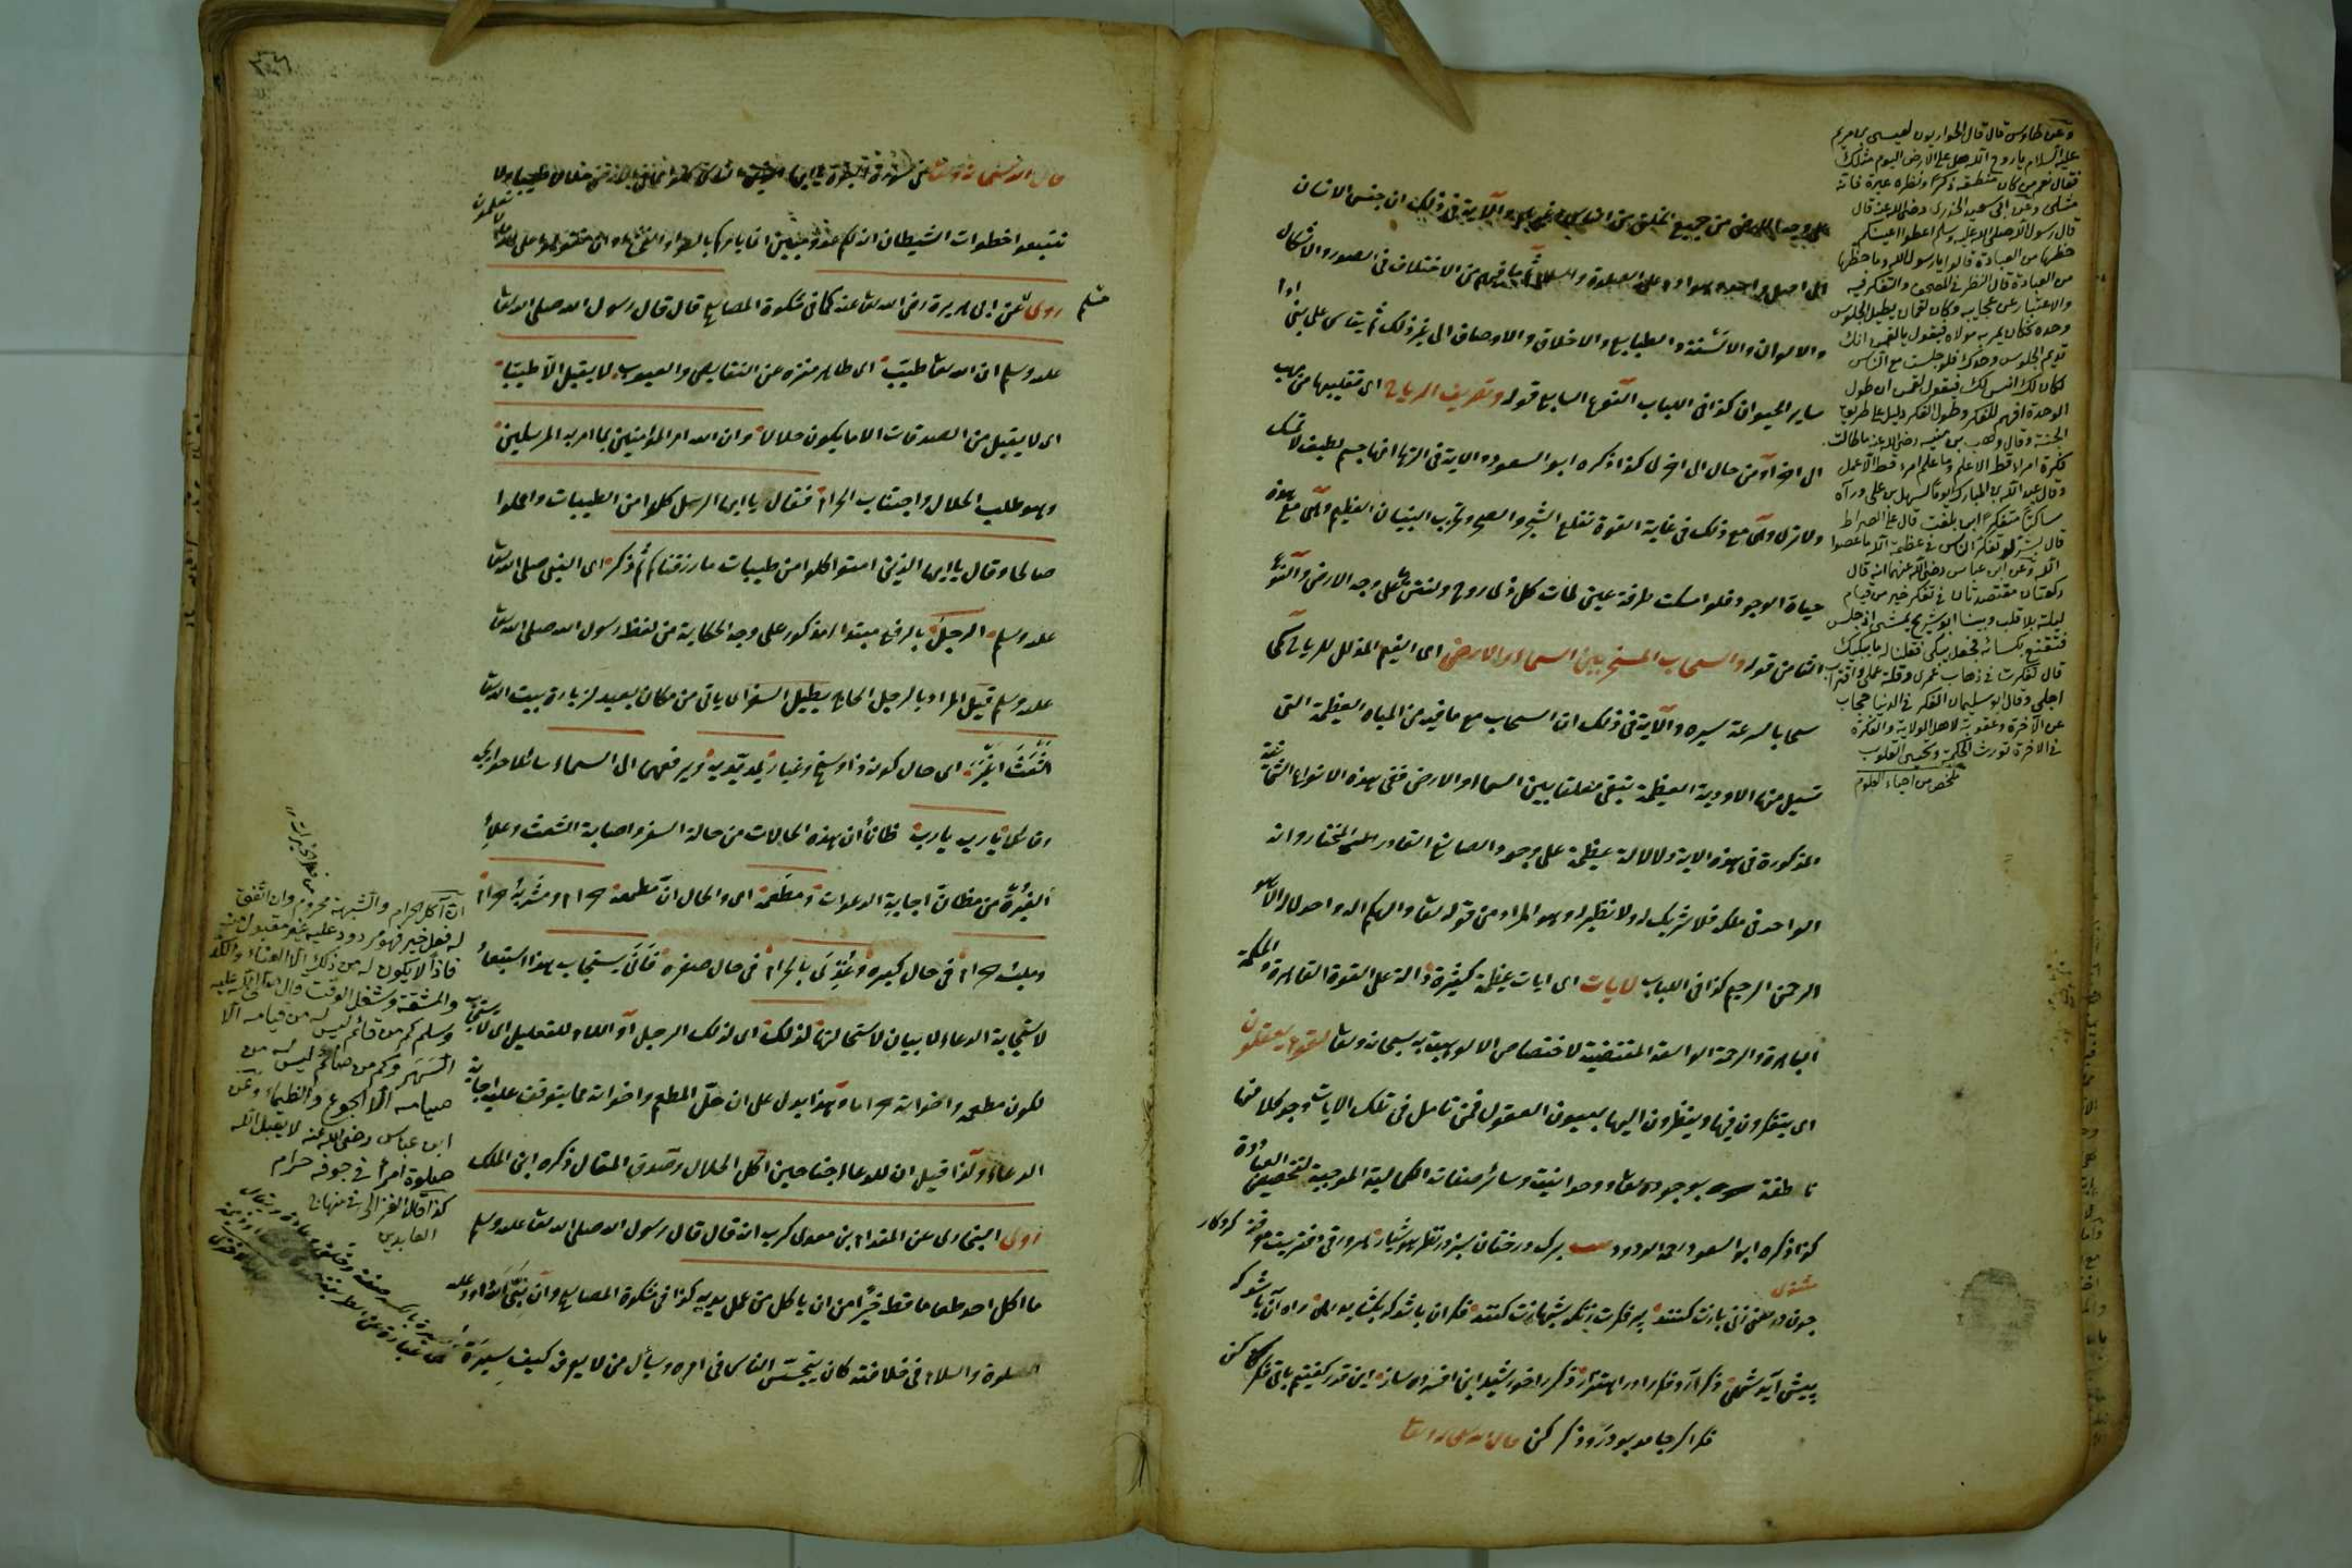 على وجه الارض من جميع الخلق من الناس وغيرهم والآية فى ذلك ان جنس الانسان
الى اصل واحد وهو آدم عليه الصلوة والسلام ثم ما فيهم من الاختلاف فى الصور والاشكال
والالوان والالسنة والطبايع والاخلاق والاوصاف الى غير ذلك ثم يقاس على بنى ادم
ساير الحيوان كذا فى اللباب النوع السابع قوله وتصريف الرياح اى تقليبها من مهب
الى اخر او من حال الى اخرى كذا ذكره ابو السعود والاية فى الريح انها جسم لطيف لا تمسك
ولا ترى وهى مع ذلك فى غاية القوة تقلع الشجر والصخر وتخرب البنيان العظيم وهى مع هذه
حياة الوجود فلو امسكت طرفة عين لمات كل ذى روح وانتن ما على وجه الارض والنوع
الثامن قوله والسحاب المسخر بين السماء والارض اى الغيم المذلل للرياح سمى
سحابا لسرعة سيره والآية فى ذلك ان السحاب مع ما فيه من المياه العظيمة التى
تسيل منها الاودية العظيمة يبقى معلقا بين السماء والارض ففى هذه الانواع الثمانية
المذكورة فى هذه الاية دلالة عظيمة على وجود الصانع القادر المختار وانه
الواحد فى ملكه فلا شريك له ولا نظير له وهو المراد من قوله تعالى والهكم اله واحد لا اله الا هو
الرحمن الرحيم كذا فى اللباب لايات اى ايات عظيمة كثيرة دالة على القوة القاهرة والحكمة
الباهرة والرحمة الواسعة المقتضية لاختصاص الالوهية به سبحانه وتعالى لقوم يعقلون
اى يتفكرون فيها وينظرون اليها بعيون العقول فمن تامل فى تلك الايات وجد كلا منها
ناطقة بوجوده تعالى ووحدانيته وسائر صفاته الكمالية الموجبة لتخصيص العبادة
كذا ذكره ابو السعود رحمه الودود برك درختان سبز در نظر هوشيار هر ورقى دفتريست معرفت كردكار
مثنوى
پيش آيد شهى ذكر آرد فكر را در اهتزاز ذكر را خورشيد اين افسرده ساز اين قدر كفتيم باقى فكر كن
فكر اكر جامد بود رو ذكر كن قال الله سبحانه وتعالى
وعن طاوس قال قال الحواريون لعيسى بن مريم
عليه السلام يا روح الله هل على الارض اليوم مثلك
فقال نعم من كان منطقه ذكرا ونظره عبرة فانه
مثلى وعن ابى سعيد الخدرى رضى الله عنه قال
قال رسول الله صلى الله عليه وسلم اعطوا اعينكم
حظها من العبادة قالوا يا رسول الله وما حظها
من العبادة قال النظر فى المصحف والتفكر فيه
والاعتبار عن عجايبه وكان لقمان يطيل الجلوس
وحده فكان يمر به مولاه فيقول يا لقمن انك
تديم الجلوس وحدك فلو جلست مع الناس
لكان لك انس لك فيقول لقمن ان طول
الوحدة افهم للفكر وطول الفكر دليل على طريق
الجنة وقال وهب بن منبه رضى الله عنه ما طالت
فكرة امرء قط الا علم وما علم امرء قط الا عمل
وقال عبد الله بن المبارك يوما لسهل بن على ورآه
ساكتا متفكرا اين بلغت قال على الصراط
قال بشر لو تفكر الناس فى عظمة الله ما عصوا
الله وعن ابن عباس رضى الله عنهما انه قال
ركعتان مقتصدتان فى تفكر خير من قيام
ليلة بلا قلب وبينا ابو شريح يمشى اذ جلس
فتقنع بكسائه فجعل يبكى فقلنا له ما يبكيك
قال تفكرت فى ذهاب عمرى وقلة عملى واقتراب
اجلى وقال ابو سليمان الفكر فى الدنيا حجاب
عن الآخرة وعقوبة لاهل الولاية والفكرة
فى الاخرة تورث الحكمة وتحيى القلوب
ملخص من احياء العلوم
تتبعوا خطوات الشيطان انه لكم عدو مبين انما يامركم بالسوء والفحشاء وان تقولوا على الله
روى عن ابى هريرة رضى الله تعالى عنه كما فى مشكوة المصابيح قال قال رسول الله صلى الله تعالى
مسلم
عليه وسلم ان الله تعالى طيب اى طاهر منزه عن النقايص والعيوب لا يقبل الا طيبا
اى لا يقبل من الصدقات الا ما يكون حلالا وان الله امر المؤمنين بما امر به المرسلين
وهو طلب الحلال واجتناب الحرام فقال يا ايها الرسل كلوا من الطيبات واعملوا
صالحا وقال يا ايها الذين امنوا كلوا من طيبات ما رزقناكم ثم ذكر اى النبى صلى الله تعالى
عليه وسلم الرجل بالرفع مبتدا مذكور على وجه الحكاية من لفظ رسول الله صلى الله تعالى
عليه وسلم قيل المراد بالرجل الحاج يطيل السفر اى ياتى من مكان بعيد لزيارة بيت الله تعالى
اشعث اغبر اى حال كونه ذا وسخ وغبار يمد يديه ويرفعهما الى السماء سائلا حوايجه
وقائلا يا رب يا رب ظانا ان هذه الحالات من حالة السفر واصابة الشعث وعلاء
الغبرة من مظان اجابة الدعوات ومطعمه اى والحال ان مطعمه حرام ومشربه حرام
وملبسه حرام فى حال كبره وغذى بالحرام فى حال صغره فانى يستجاب هذا استبعاد
لاستجابة الدعاء لا بيان لاستحالتها لذلك اى لذلك الرجل او اللام للتعليل اى لا يستجاب
لكون مطعمه واخواته حراما وهذا يدل على ان حل المطعم واخواته مما يتوقف عليه اجابة
الدعاء ولذا قيل ان للدعاء جناحين اكل الحلال وصدق المقال ذكره ابن الملك
روى البخارى عن المقدام بن معدى كرب انه قال قال رسول الله صلى الله تعالى عليه وسلم
ما اكل احد طعاما قط خيرا من ان ياكل من عمل يديه كذا فى مشكوة المصابيح وان نبى الله داود عليه
الصلوة والسلام فى خلافته كان يتجسس الناس فى امره ويسأل من لا يعرفه كيف سيرة
ان آكل الحرام والشبهة محروم وان اتفق
له فعل خير فهو مردود عليه غير مقبول منه
فاذا لا يكون له من ذلك الا العناء والكد
والمشقة وشغل الوقت قال صلى الله عليه
وسلم كم من قائم ليس له من قيامه الا
السهر وكم من صائم ليس له من
صيامه الا الجوع والظماء وعن
ابن عباس رضى الله عنه لا يقبل الله
صلوة امرء فى جوفه حرام
كذا قال الغزالى فى منهاج
العابدين